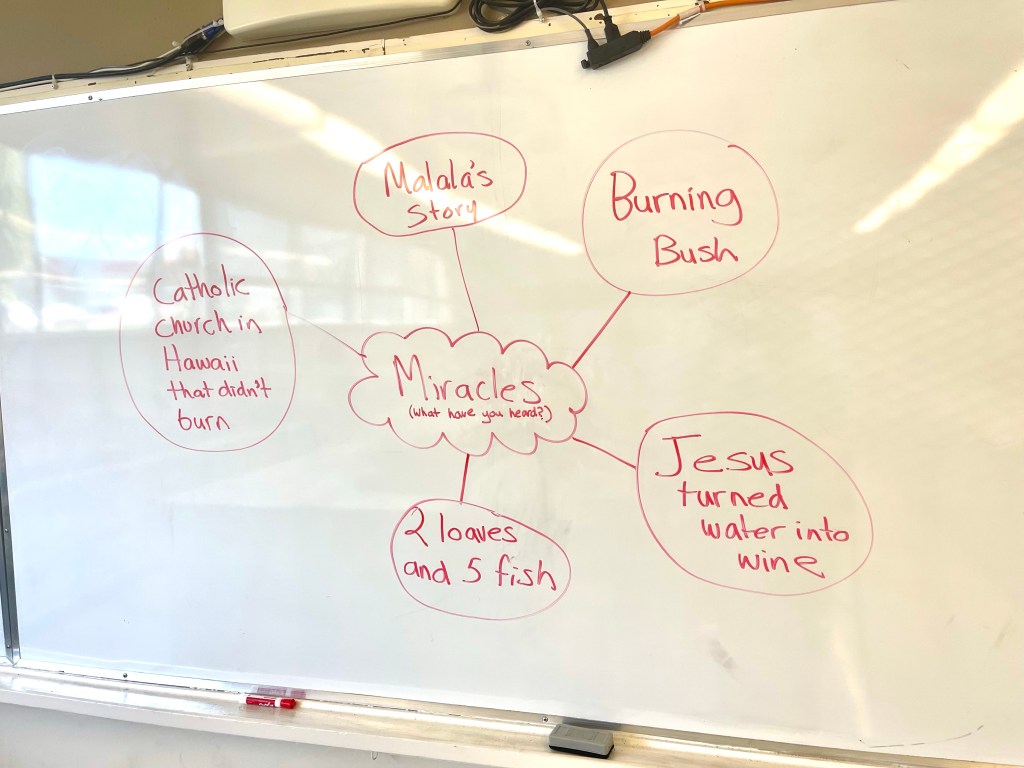 Malala's
story
Burning
Bush
Catholic
church in
Hawaii
that didn't
burn
Miracles
(what have you heard?)
Jesus
turned
water into
wine
2 loaves
and 5 fish